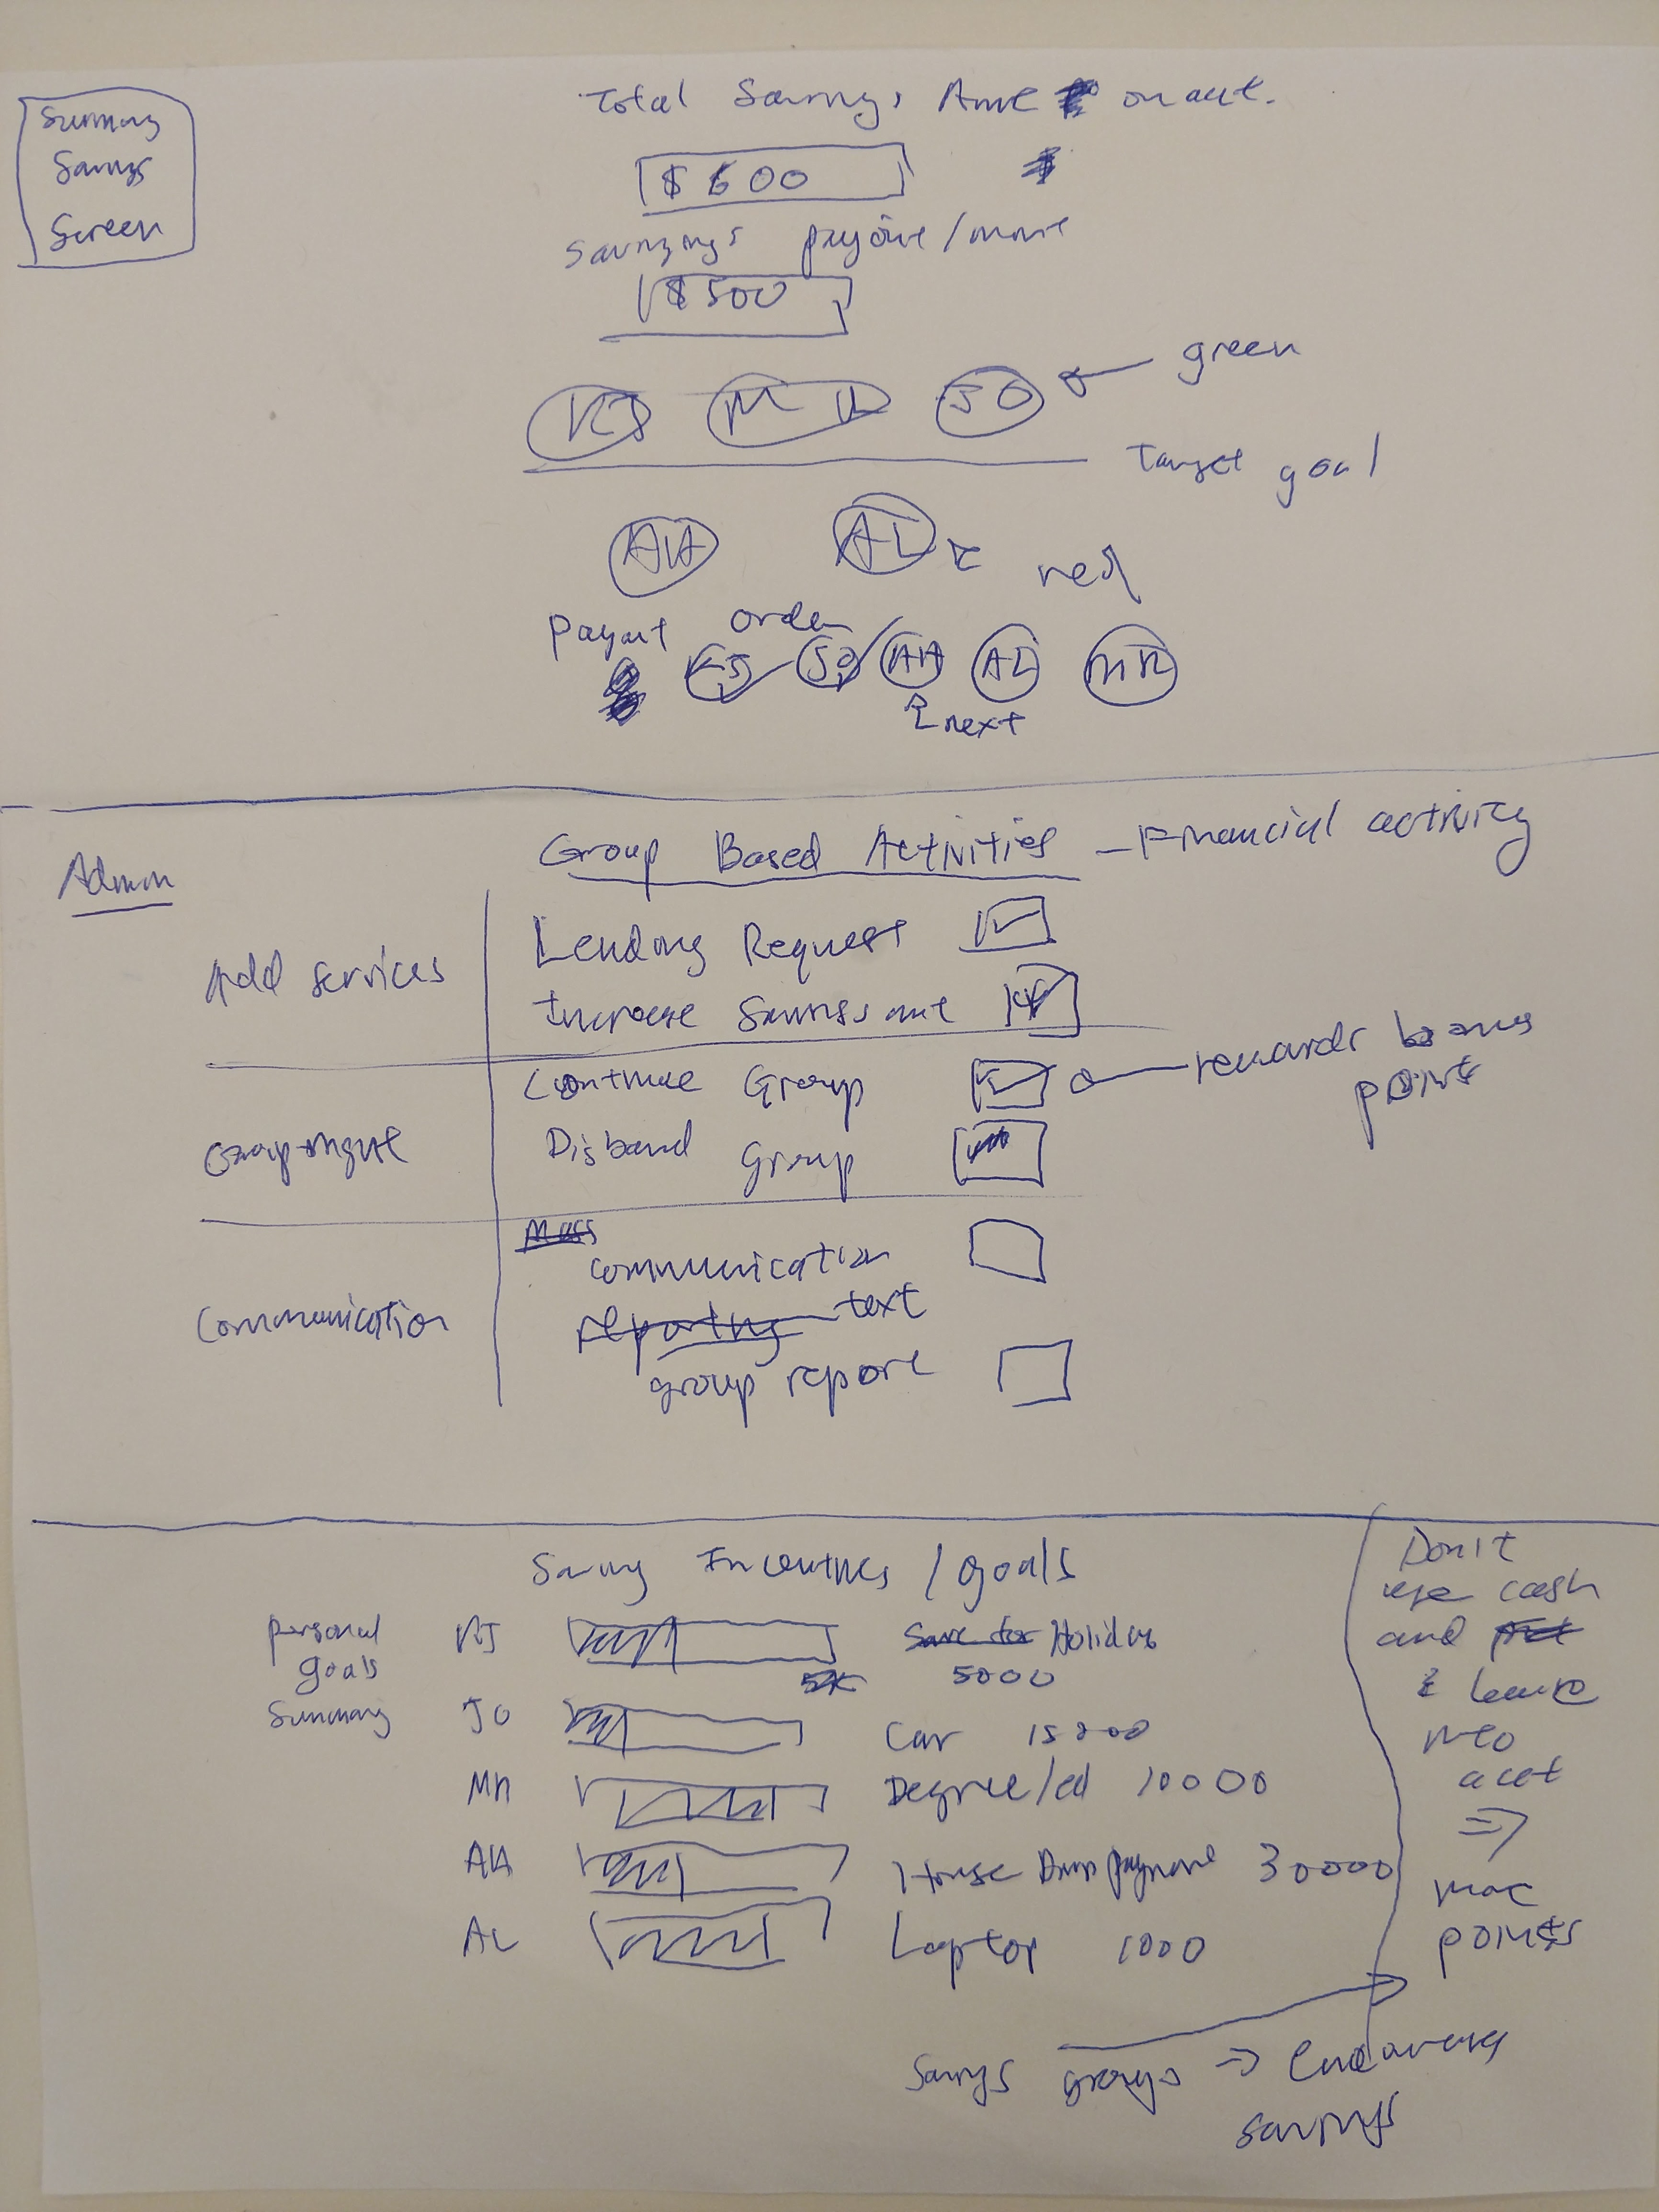 Summary
Savings
Screen
Total Savings Amt on acct.
$600
Savings payout/month
$500
KJ MR JO green
Target goal
AA AL red
Payout order
KJ JO AA AL MR
next
Admin
Group Based Activities - Financial activity
Add services
Lending Request
Increase Savings amt
Continue Group rewards bonus
points
Group mgmt
Disband Group
Mass
communication
Communication
reporting text
group report
Saving Incentives / goals
personal
goals
Summary
KJ Save for Holiday
5K 5000
JO Car 15000
MR Degree/ed 10000
AA House Down payment 30000
AL Laptop 1000
Don't
use cash
and
& leave
into
acct
=>
more
points
Savings groups =>
savings